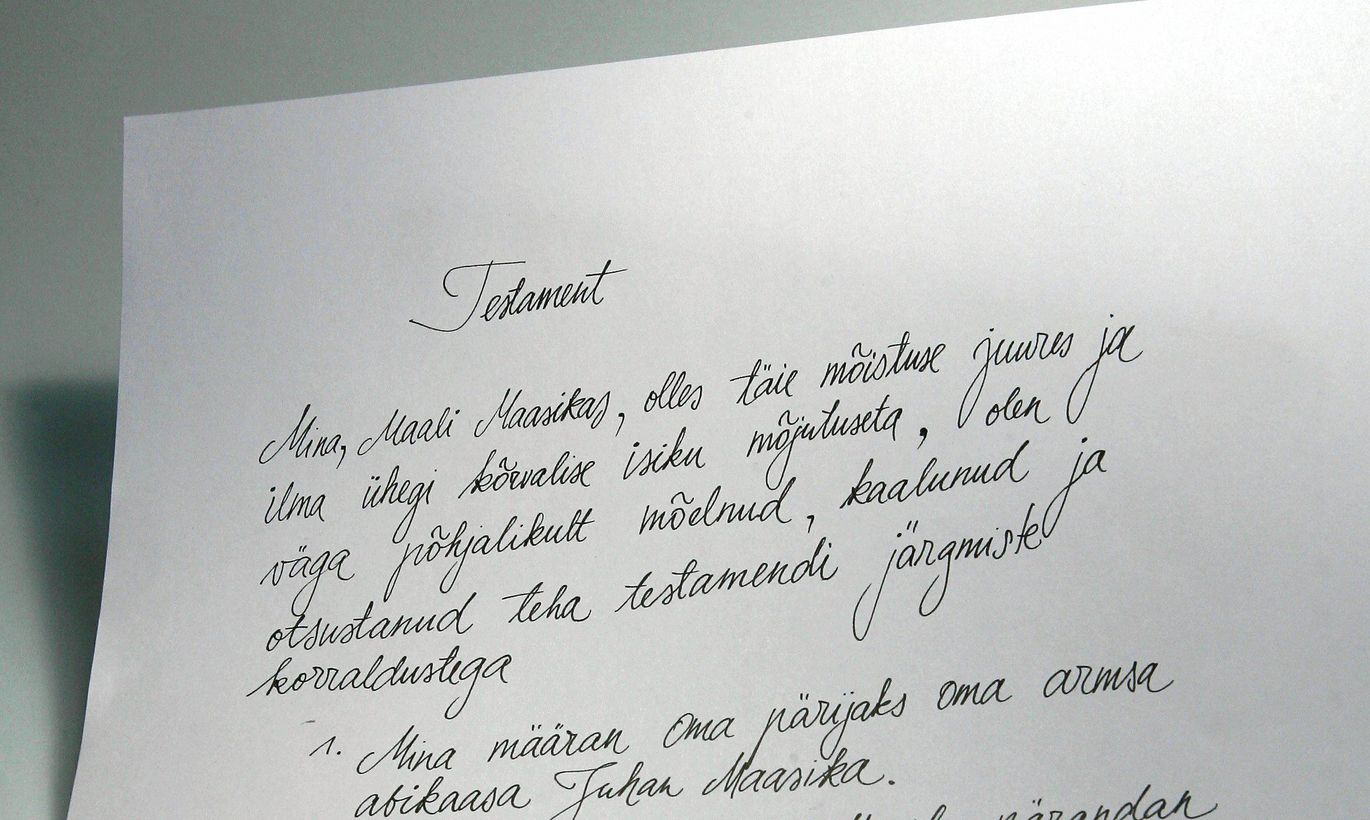 Testament
Mina, Maali Maasikas, olles täie mõistuse juures ja
ilma ühegi kõrvalise isiku mõjutuseta, olen
väga põhjalikult mõelnud, kaalunud ja
otsustanud teha testamendi järgmiste
korraldustega
1. Mina määran oma pärijaks oma armsa
abikaasa Juhan Maasika.
pärandan